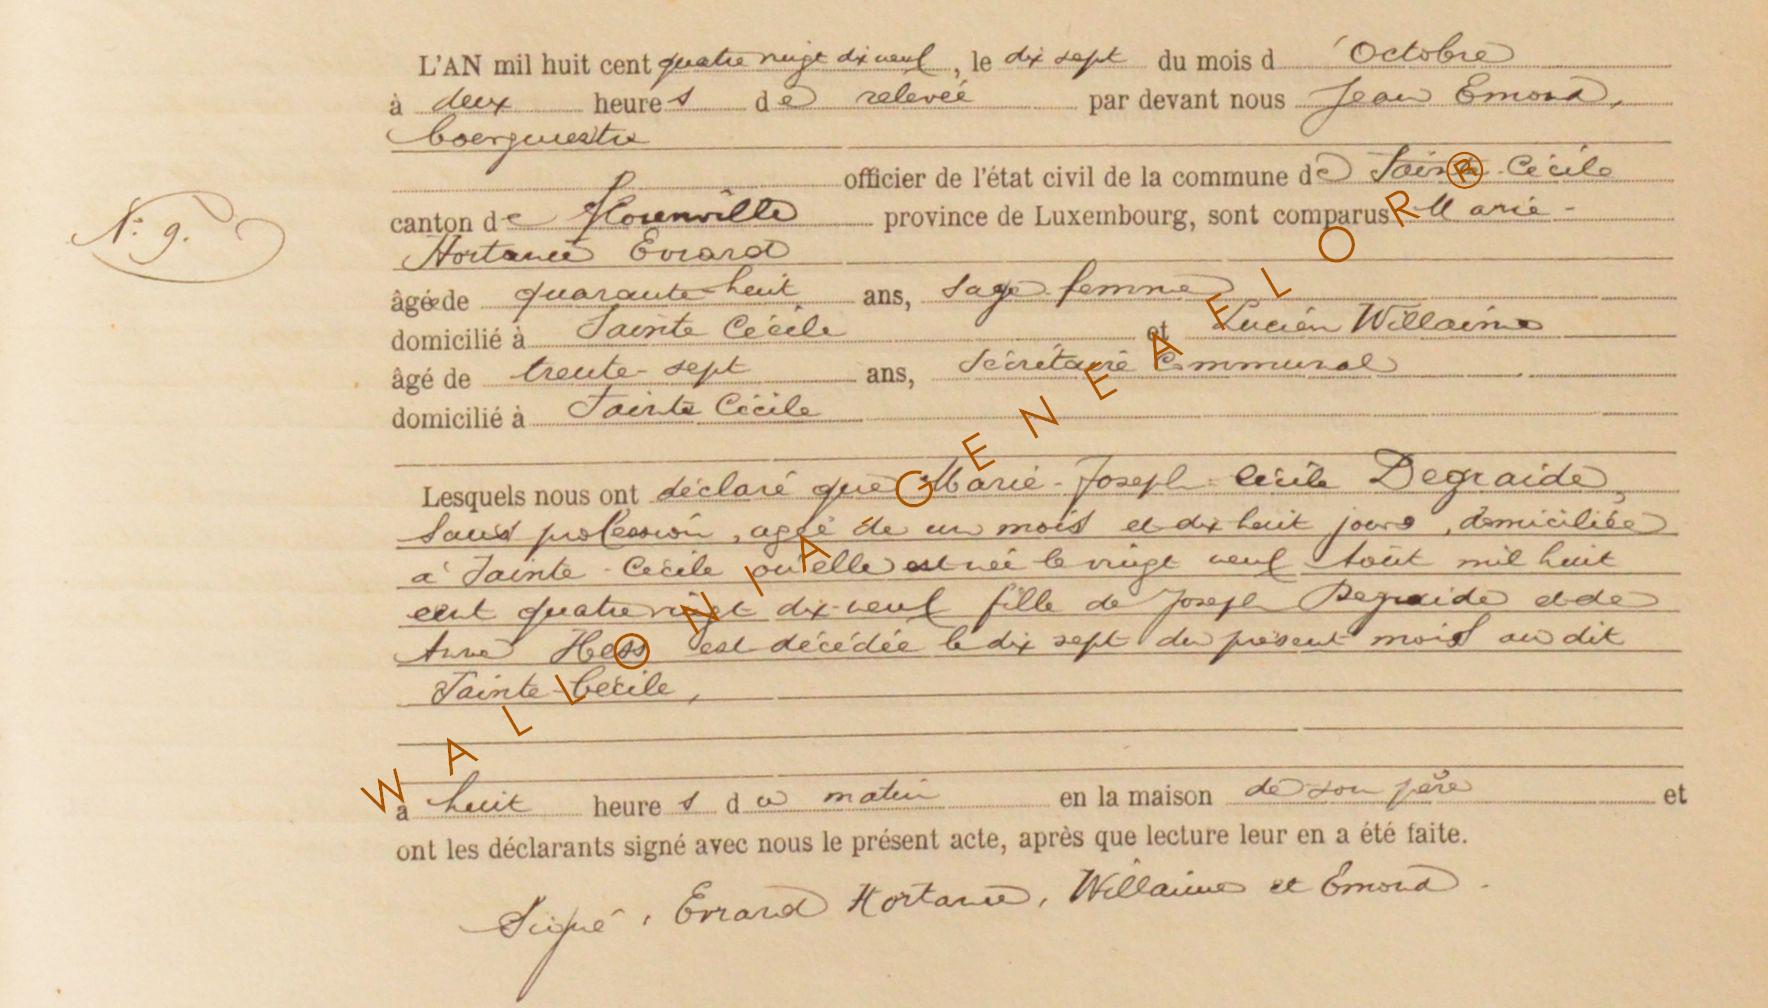 L'AN mil huit cent quatre vingt dix neuf, le dix sept du mois d 'Octobre
à deux heures de relevée par devant nous Jean Emond,
boergmestre
officier de l'état civil de la commune de Sainte-Cécile
N: 9. canton de Florenville province de Luxembourg, sont comparus Marie-
Hortance Evrard
âgée de quarante-huit ans, sage femme
domicilié à Sainte Cécile et Lucien Willaime
âgé de trente-sept ans, Sécrétaire Communal
domicilié à Sainte Cécile
Lesquels nous ont déclaré que Marie-Joseph-Cécile Degraide,
sans profession, agée de un mois et dix huit jours, domiciliée
à Sainte-Cécile qu'elle est née le vingt neuf Aout mil huit
cent quatre vingt dix-neuf fille de Joseph Degraide et de
Anne Hess est décédée le dix sept du présent mois au dit
Sainte-Cécile,
à huit heures du matin en la maison de son père et
ont les déclarants signé avec nous le présent acte, après que lecture leur en a été faite.
Signé, Evrard Hortance, Willaime et Emond.
WALLONIA-GENEAELORR®